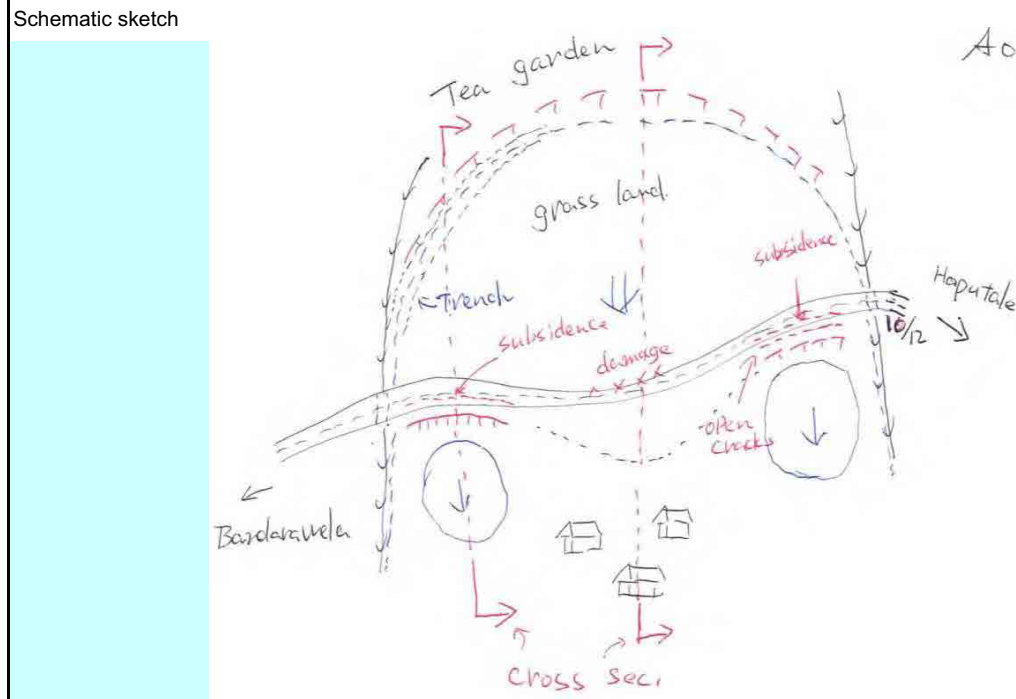 Schematic sketch
Ao
Tea garden
grass land.
subsidence
Haputale
10/12
Trench
subsidence
damage
open
cracks
Bandarawela
cross sec.